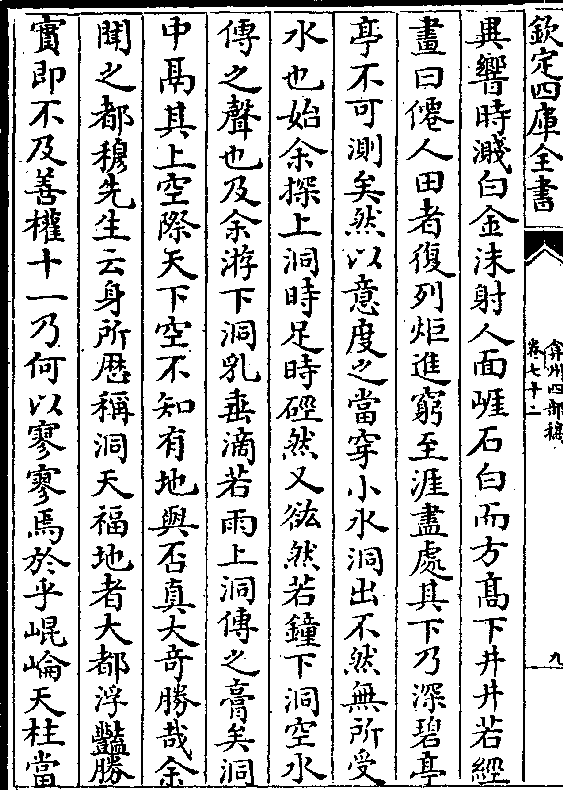 欽定四庫全書
弇州四部稿
卷七十二
九
異響時濺白金沫射人面崕石白而方髙下井井若經
畫曰僊人田者復列炬進窮至涯盡處其下乃深碧亭
亭不可測矣然以意度之當穿小水洞出不然無所受
水也始余探上洞時足時硜然又谹然若鐘下洞空水
傳之聲也及余游下洞乳垂滴若雨上洞傳之膏矣洞
中鬲其上空際天下空不知有地與否真大奇勝哉余
聞之都穆先生云身所歴稱洞天福地者大都浮豔勝
實即不及善權十一乃何以寥寥焉於乎崐崘天柱當